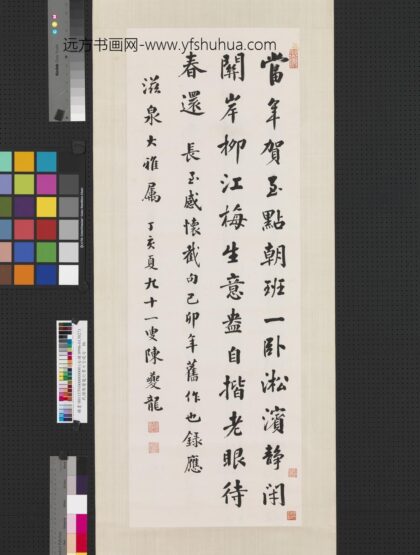 远方书画网-www.yfshuhua.com
當年賀至點朝班一卧淞濱静闲
關岸柳江梅生意盎自揩老眼待
春還 長至感懷截句己卯年舊作也錄應
滋泉大雅属 丁亥夏九十一叟陳夔龍